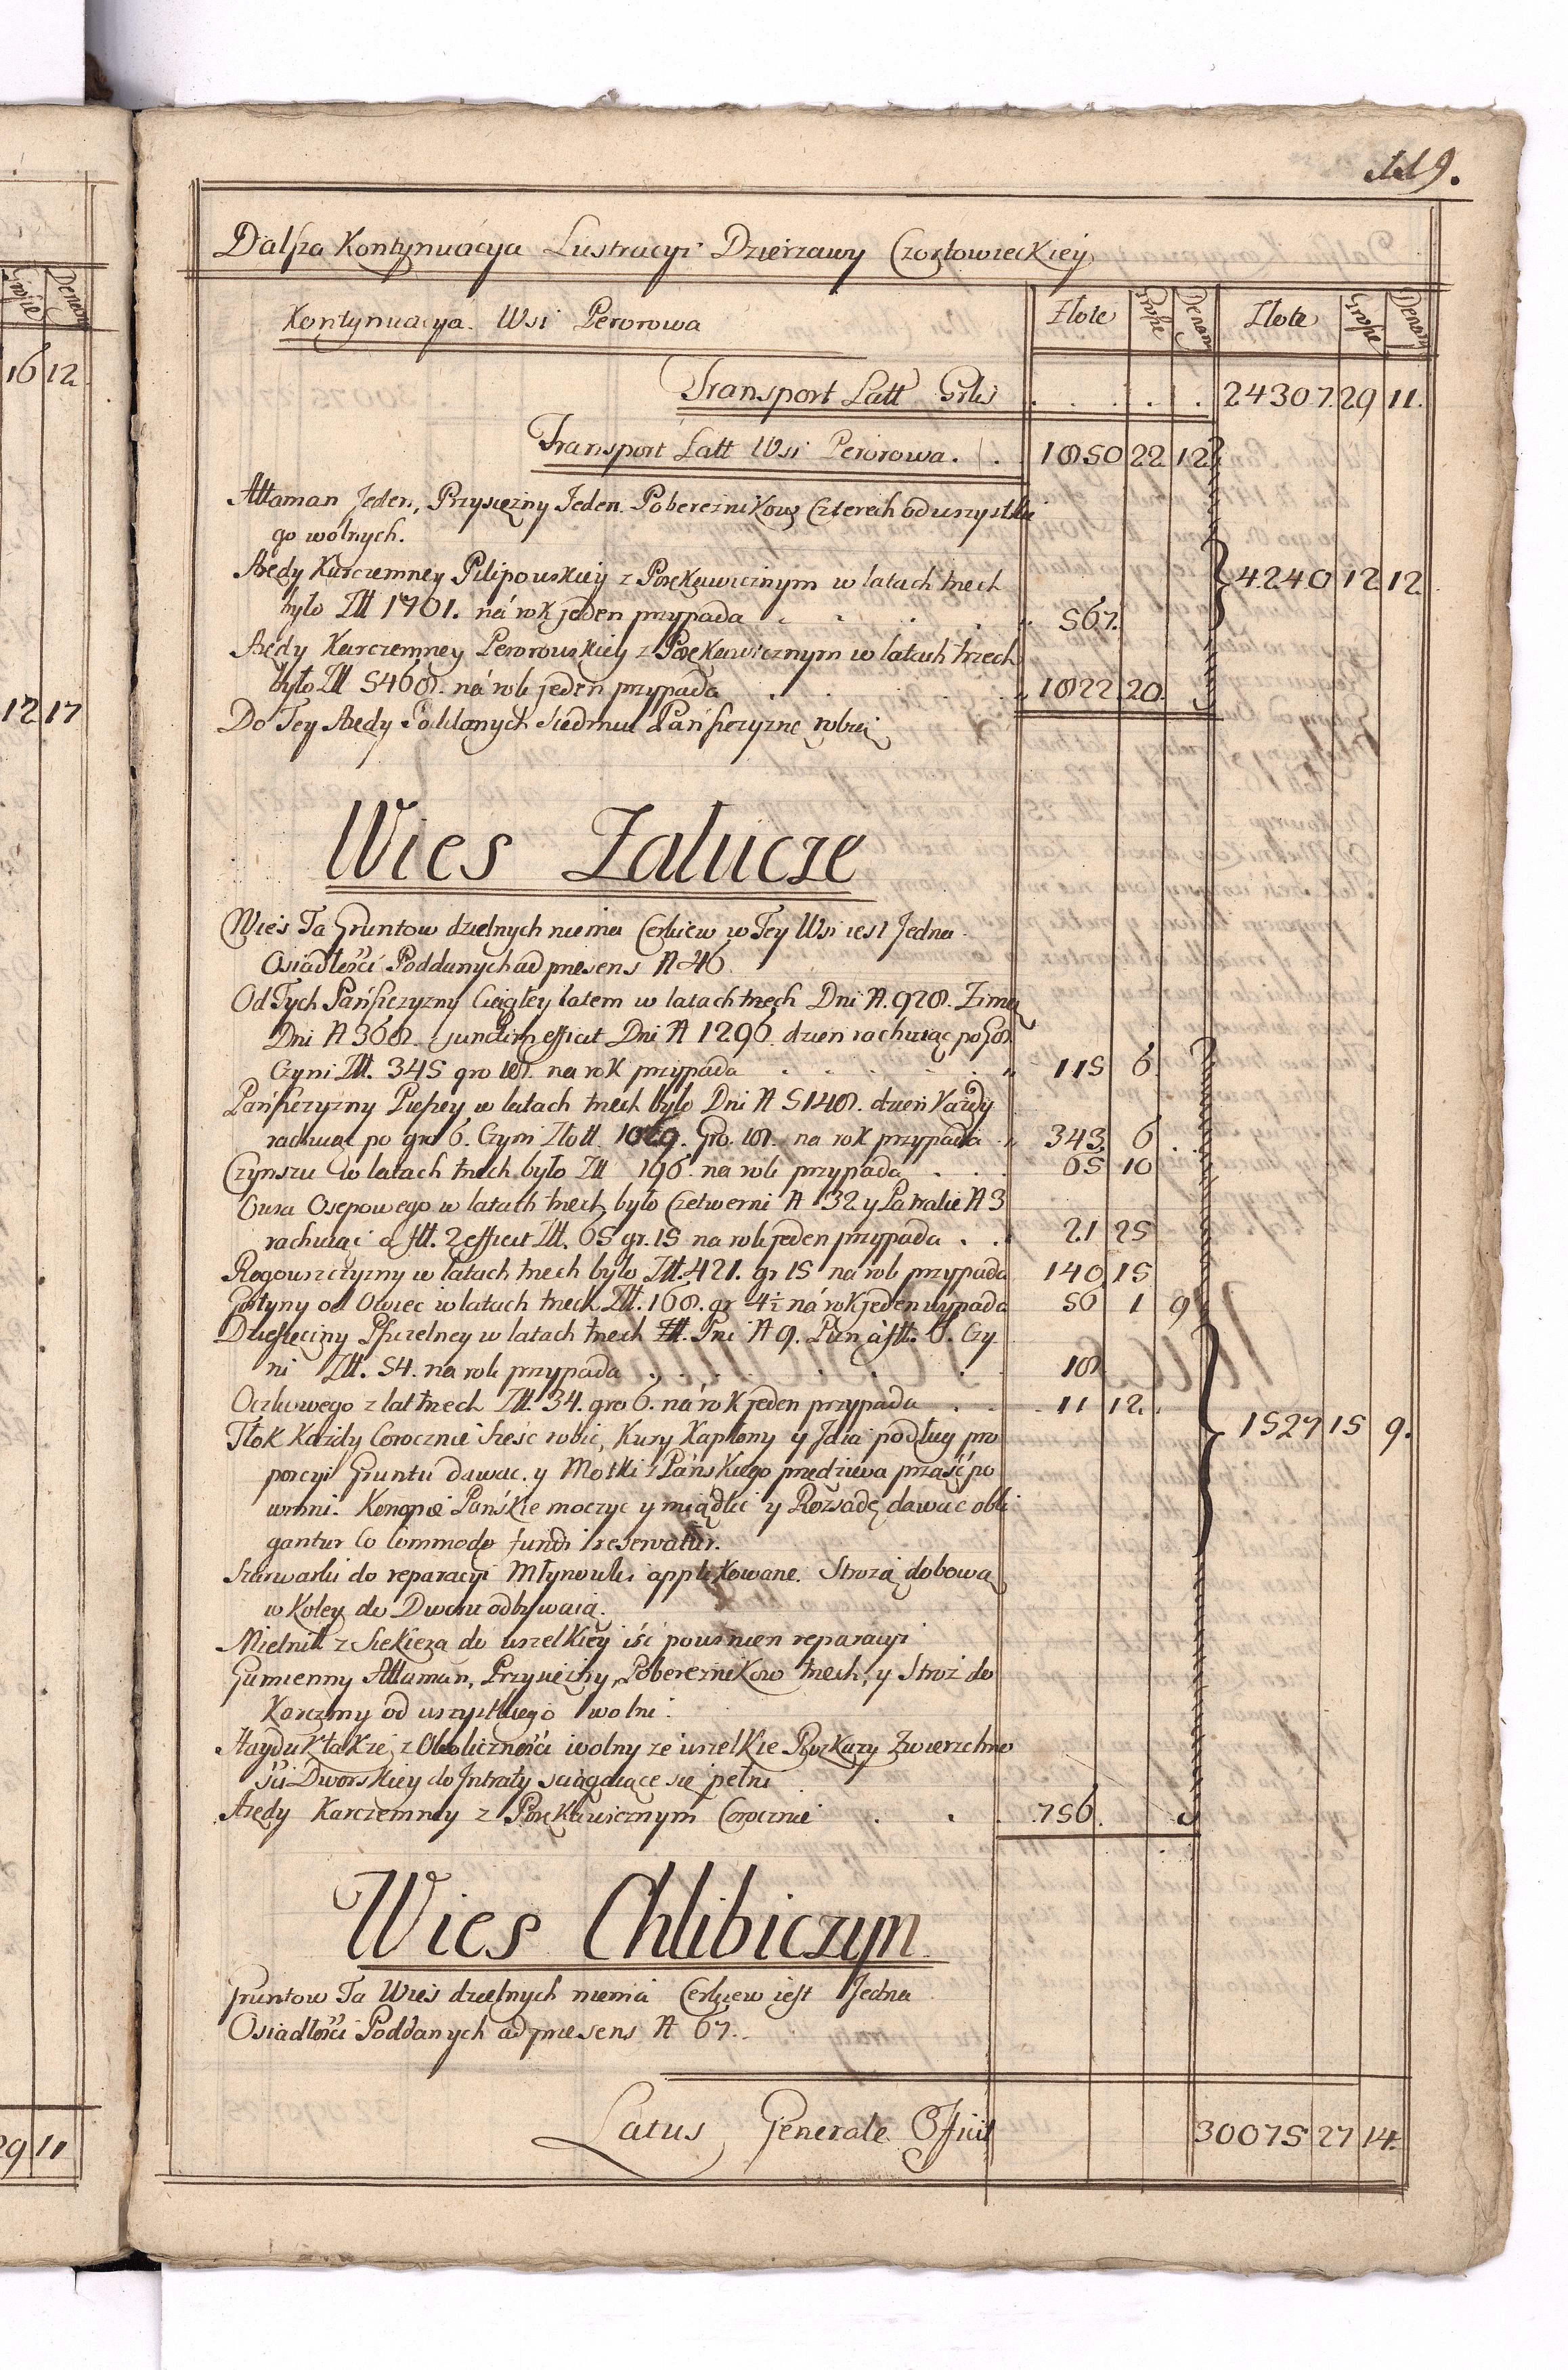 119.
Dalsza Kontynuacya Lustracyi Dzierzawy Czortowieckiey
Kontynuacya Wsi Perorowa Złote Grosze Denary Złote Grosze Denary
Transport Latt Gnlis . . . . . 24307. 29 11.
Transport Latt Wsi Perorowa. . 1850 22 12
Attaman Jeden, Przysięzny Jeden. Pobereznikow Czterech od wszystkie
go wolnych.
Arędy Karczemney Pilipowskiey z Porękawicznym w latach trzech 4240 12 12
było Złł 1701. ná rok jeden przypada 567.
Arędy Karczemney Perorowskiey z Porękawicznym w latach trzech
było Złł 5468. ná rok jeden przypada 1822. 20.
Do Tey Arędy Poddanych Siedmiu Pańszczyznę robią
Wies Zalucze
Wieś Ta Gruntow dzielnych niema Cerkiew w Tey Wsi iest Jedna.
Osiadłości Poddanych ad presens N 46.
Od Tych Pańszczyzny Ciągłey latem w latach trzech Dni N. 928. Zimą
Dni N 368. junctim efficit Dni N 1296. dzien rachuiąc po Gr 8.
Czyni Złł. 345 gro 18. na rok przypada 115 6.
Pańszczyzny Pieszey w latach trzech było Dni N 5148. dzień Każdy
rachuiąc po gro 6. Czyni Złott 1029. Gro. 18. na rok przypada 343. 6
Czynszu w latach trzech było Złł 196. na rok przypada 65 10
Owsa Osepowego w latach trzech było Czetwerni N 32 y Patralie N 3
rachuiąc a fłł. 2 efficit Złł. 65 gr. 15 na rok jeden przypada . . 21 25
Rogowszczyzny w latach trzech było Złł. 421. gr 15 na rok przypada 140 15
Gostyny od Owiec w latach trzech Złł. 168. gr 4½ ná rok jeden wypada 56 1 9
Dziesięciny Pszczelney w latach trzech Pni N 9. Pien á fłł. 6. Czy
ni Złł. 54. na rok przypada 18.
Oczkowego z lat trzech Złł. 34. gro 6. ná rok jeden przypada 11 12.
Tłok Każdy Corocznie sześć robić, Kury Kapłony y Jaia podług pro 1527 15 9.
porcyi Gruntu dawac. y Motki z Pańskiego przędziwa prząść po
winni. Konopie Pańskie moczyc y miądlic y Rozsadę dawac obli
gantur Co Commodo fundi reservatur.
Szarwarki do reparacyi Młynowki applikowane. Strożą dobową
w Koley do Dworu odbywaią.
Mielnik z Siekiezą do wszelkiey iść powinien reparacyi
Gumienny Attaman, Przysiężny, Pobereznikow trzech, y Stroż do
Karczmy od wszystkiego wolni.
Hayduk także z Okoliczności wolny ze wszelkie Rozkazy Zwierzchno
ści Dworskiey do Intraty sciągaiące się pełni
Arędy Karczemney z Porękawicznym Corocznie 756.
Wies Chlibiczyn
Gruntow Ta Wieś dzielnych niema Cerkiew iest Jedna
Osiadłości Poddanych ad presens N 67.
Latus Generale Efficit 30075 27 14.
Grosze Denary
16 12.
12 17
29 11